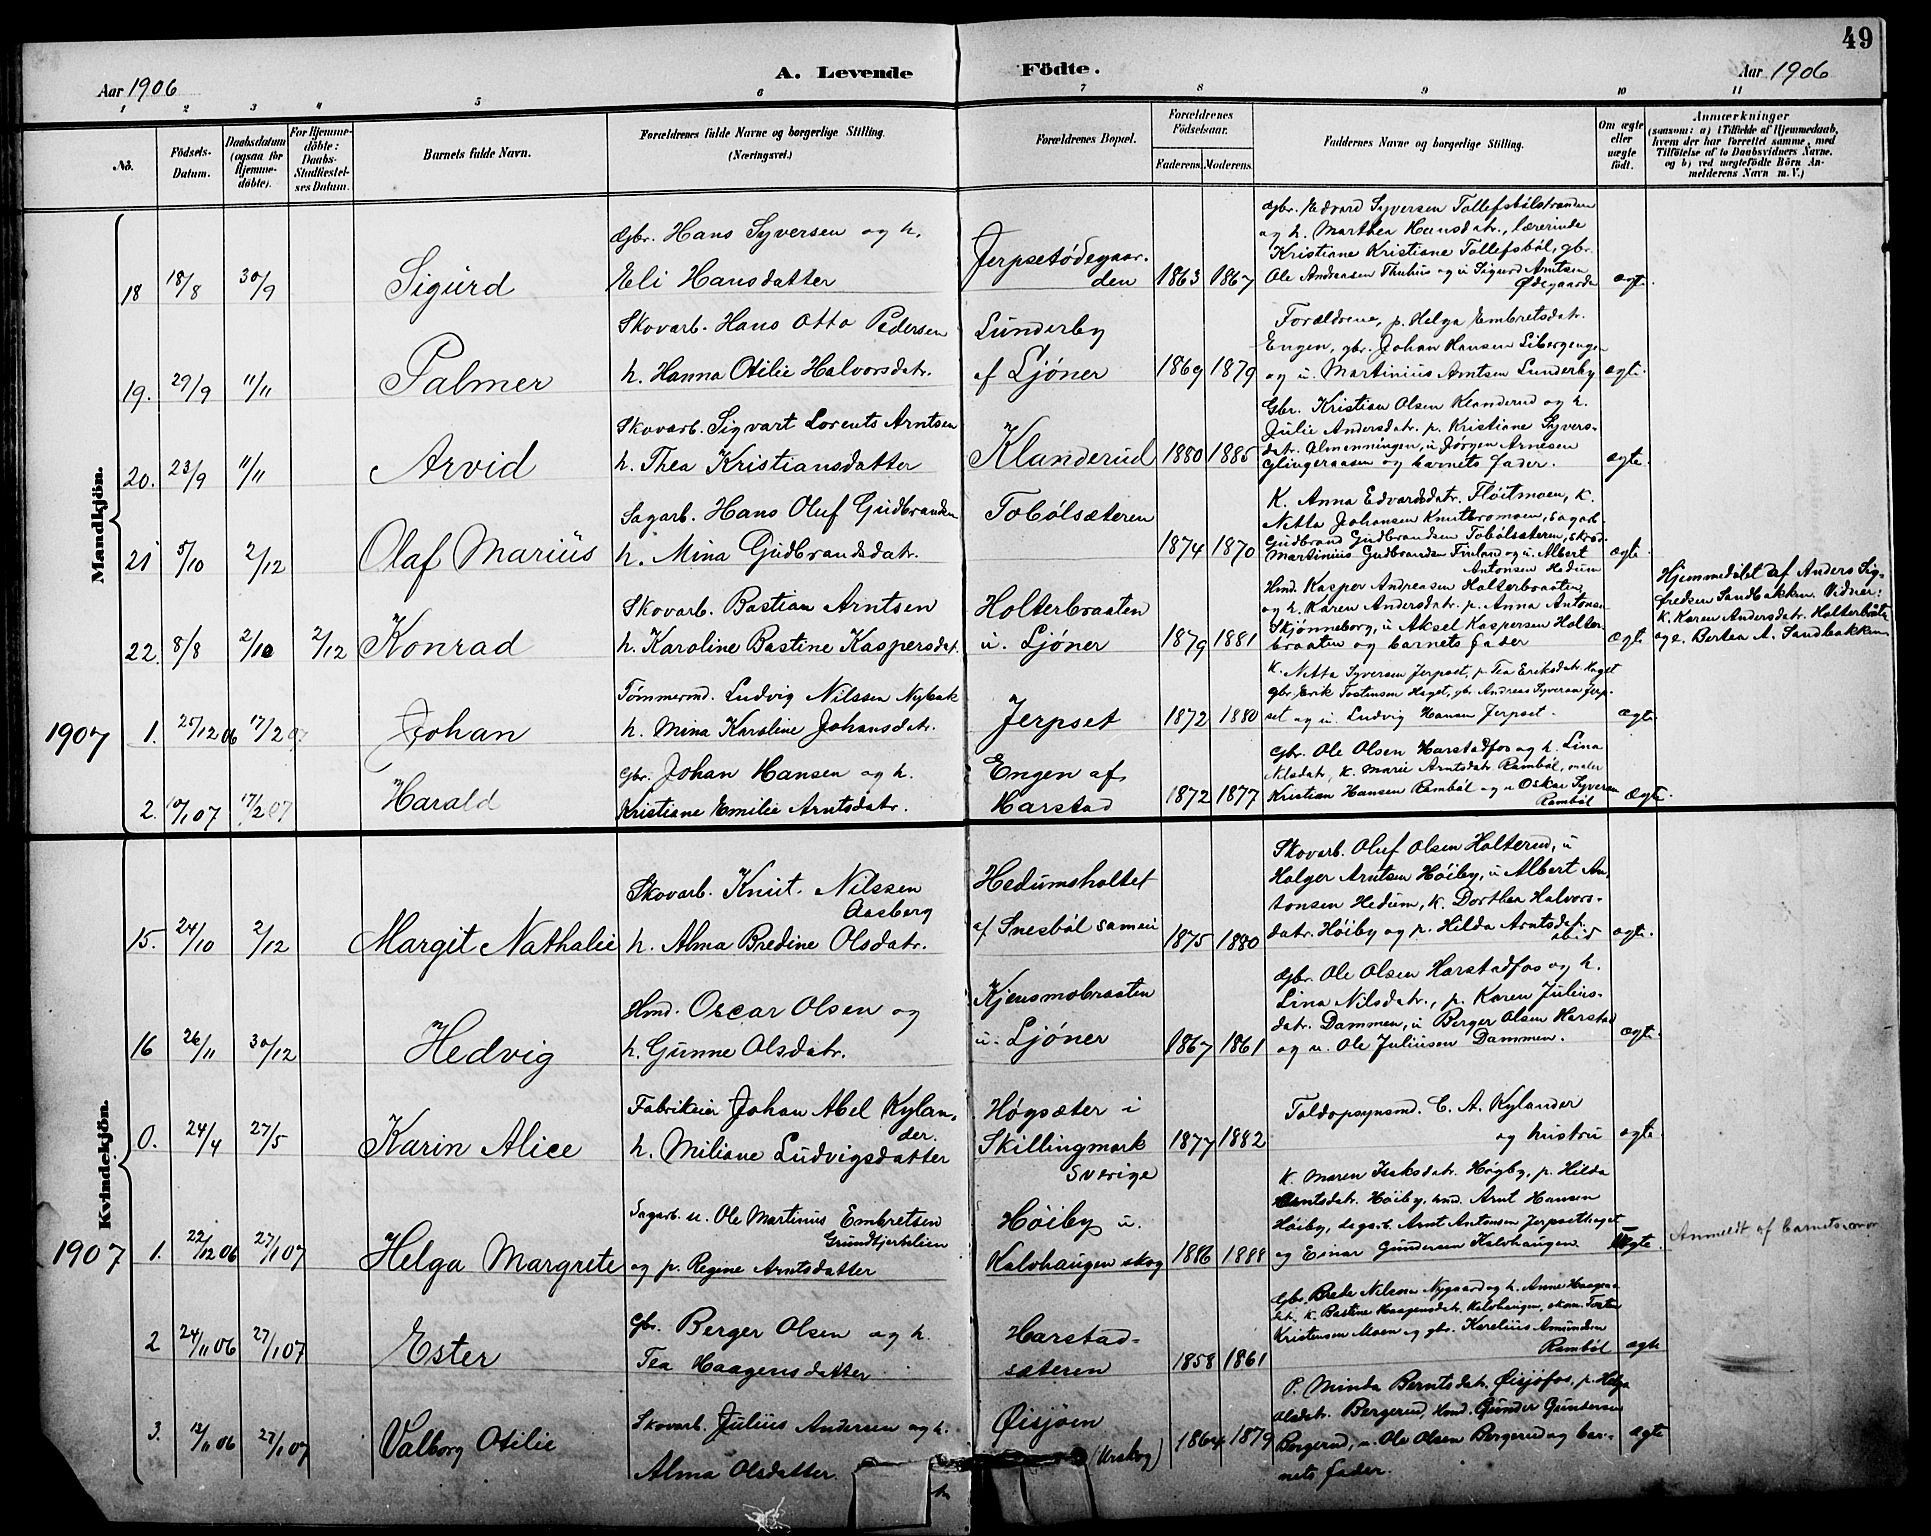 49
Aar 1906
A. Levende Födte.
Aar 1906
1 2 3 4 5 6 7 8 9 10 11
No.
Födsels-
Datum.
Daabsdatum
(ogsaa for
Hjemme-
döbte).
For Hjemme-
döbte:
Daabs-
Stadfæstel-
ses Datum.
Barnets fulde Navn.
Forældrenes fulde Navne og borgerlige Stilling.
(Næringsvei.)
Forældrenes Bopæl.
Forældrenes
Födselsaar.
Faderens. Moderens.
Faddernes Navne og borgerlige Stilling.
Om ægte
eller
uægte
født.
Anmærkninger
(saasom: a) i Tilfælde af Hjemmedaab,
hvem der har forrettet samme, med
Tilföielse af to Daabsvidners Navne.
og b) ved uægtefödte Börn An-
melderens Navn m. V.)
Mandkjön.
18 18/8 30/9 Sigurd
Gbr. Hans Syversen og h.
Eli Hansdatter
Jerpsetødegaar-
den
1863 1867
Gbr. Edvard Syversen Tollefsbølstranden
og h. Marthea Hansdatr., lærerinde
Kristiane Kristiane Tollefsbøl, gbr.
Ole Andreasen Thuhus og u Sigurd Arntsen
Ødegaarden
ægte.
19. 29/9 11/11 Palmer
Skovarb. Hans Otto Pedersen
h. Hanna Otilie Halvorsdatr.
Lunderby
af Ljøner
1869 1879
Forældrene, p. Helga Embretsdatr.
Engen, gbr. Johan Hansen Libergengen
og u. Martinius Arntsen Lunderby
ægte.
20. 23/9 11/11 Arvid
Skovarb. Sigvart Lorents Arntsen
h. Thea Kristiansdatter
Klanderud
1880 1885
Gbr. Kristian Olsen Klanderud og h.
Julie Andersdatr. p. Kristiane Syvers-
datr. Almenningen, u Jørgen Arnesen
Glingeraasen og barnets fader.
ægte.
21 5/10 2/12 Olaf Marius
Sagarb. Hans Oluf Gudbrandsen
h. Mina Gudbrandsdatr.
Tobølsæteren
1874 1870
K. Anna Edvardsdatr. Fløitmoen, K.
Netta Johansen Knutbromoen, sagarb.
Gudbrand Gudbrandsen Tobølsæteren,
Martinius Gudbrandsen Finland og u. Albert
Antonsen Hedum
ægte.
22. 8/8 2/10 2/12 Konrad
Skovarb. Bastian Arntsen
h. Karoline Bastine Kaspersdat.
Holterbraaten
u. Ljøner
1879 1881
Hmd. Kasper Andreasen Holterbraaten
og h. Karen Andersdatr. p. Anna Antons-
Skjønneborg, u Aksel Kaspersen Holter-
braaten og barnets fader
ægte
Hjemmedøbt af Anders Sig-
fredsen Sandbakken. Vidner:
K. Karen Andersdatr. Holterbraaten
og p. Bertea A. Sandbakken
1907 1. 25/12 06 17/2 07 Johan
Tømmermd. Ludvig Nilssen Nybak
h. Mina Karoline Johansdatr.
Jerpset
1872 1880
K. Netta Syversen Jerpset, p. Tea Eriksdatr. Haget
gbr. Erik Tostensen Haget, gbr Andreas Syversen Jerp-
set og u. Ludvig Hansen Jerpset.
ægte.
2. 10/1 07 17/2 07 Harald
Gbr. Johan Hansen og h.
Kristiane Emilie Arntsdatr.
Engen af
Harstad
1872 1877
Gbr. Ole Olsen Harstadfos og h. Lina
Nilsdatr., K. Marie Arntsdatr. Rambøl, maler
Kristian Hansen Rambøl og u Oskar Syversen
Rambøl
Ægte.
Kvindekjön.
15. 24/10 2/12 Margit Nathalie
Skovarb. Knut. Nilssen
Aasberg
h. Alma Bredine Olsdatr.
Hedumsholtet
af Snesbøl sameie
1875 1880
Skovarb. Oluf Olsen Holterud, u
Holger Arntsen Høiby, u Albert An-
tonsen Hedum, K. Dorthea Halvors-
datr. Høiby og p. Hilda Arntsdatr.
ibid
ægte.
16 26/11 30/12 Hedvig
Hmd. Oscar Olsen og
h. Gunne Olsdatr.
Kjensmobraaten
u. Ljøner
1867 1861
Gbr. Ole Olsen Harstadfos og h.
Lina Nilsdatr., p. Karen Julius-
datr. Dammen, u Berger Olsen Harstad
og u. Ole Juliusen Dammen.
ægte.
0. 24/4 27/5 Karin Alice
Fabrikeier Johan Abel Kylan-
der.
h. Miliane Ludvigsdatter
Høgsæter i
Skillingmark
Sverige
1877 1882
Toldopsynsmd. C. A. Kylander
og hustru
ægte.
1907 1. 22/12 06 27/1 07 Helga Margrete
Sagarb. u. Ole Martinus Embretsen
Grundtjernlien
og p. Regine Arntsdatter
Høiby u.
Kalvhaugen skog
1886 1888
K. Maren Isaksdatr. Høgby, p. Hilda
Arntsdatr. Høiby, hmd. Arnt Hansen
Høiby, sagarb. Arnt Antonsen Jerpsethaget
og Einar Gundersen Kalvhaugen
Uægte.
Anmeldt af barnets mor
2 24/11 06 27/1 07 Ester
Gbr. Berger Olsen og h.
Tea Haagensdatter
Harstad-
sæteren
1858 1861
Gbr. Brede Nilssen Nygaard og h. Anne Haagens-
datr, K. Bastine Haagensdatr. Kalvhaugen, skom. Torsten
Kristensen Moen og gbr. Karelius Amundsen
Rambøl
ægte
3. 12/11 06 27/1 07 Valborg Otilie
Skovarb. Julius Andersen og h.
Alma Olsdatter
Øisjøen
(Urskog)
1864 1879
P. Minda Berntsdatr. Øisjøfos, p. Helga
Olsdatr. Bergerud, hmd. Gunder Guntersen
Bergerud, u. Ole Olsen Bergerud og bar-
nets fader.
ægte